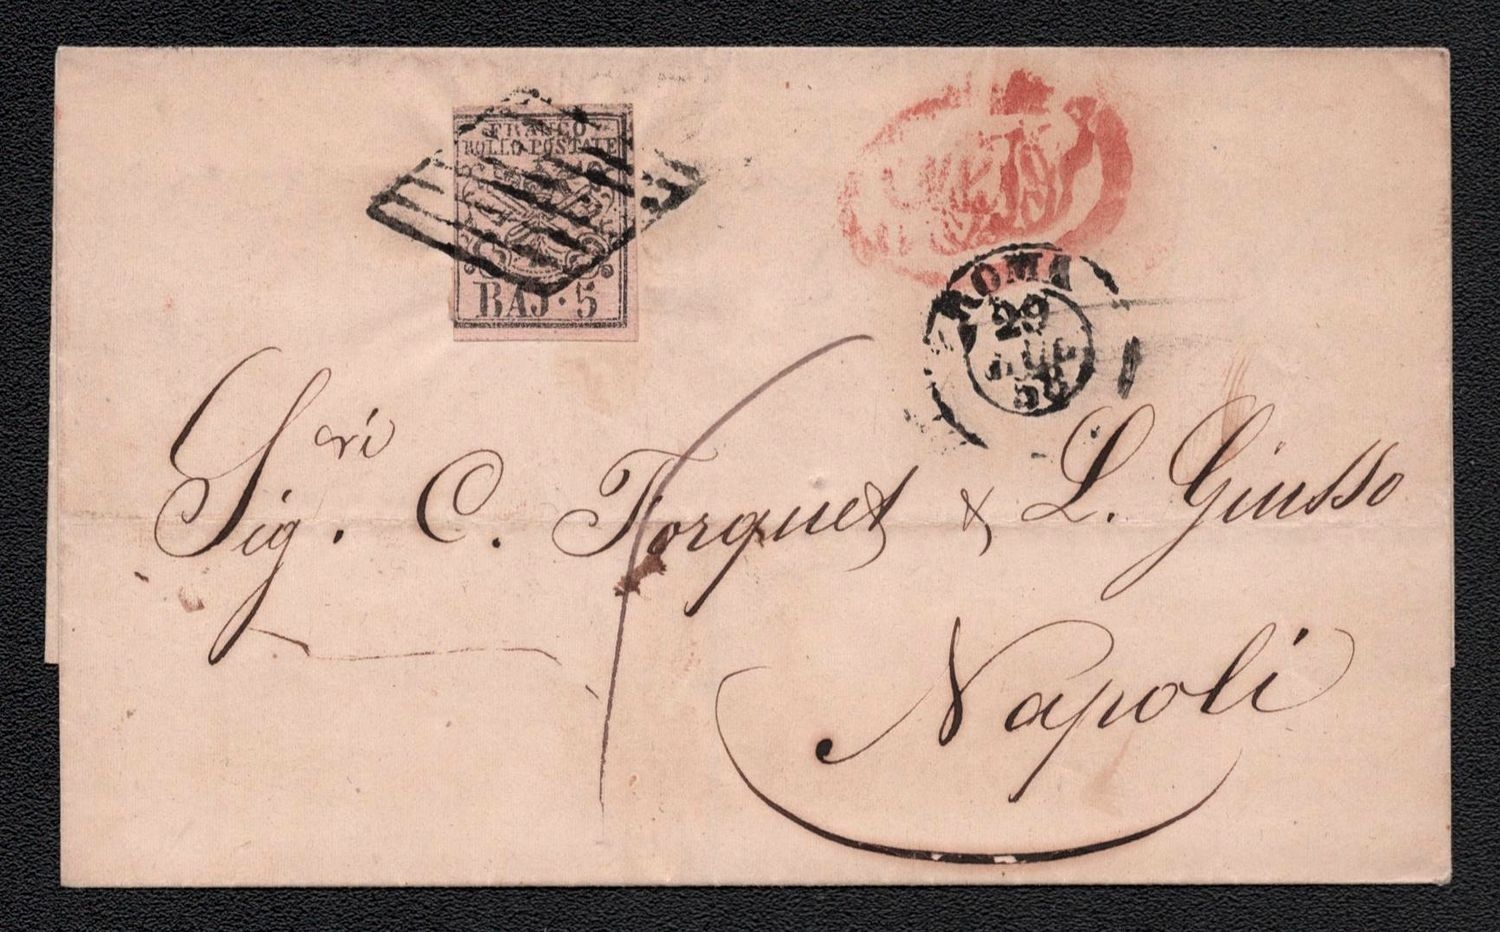 FRANCO
BOLLO POSTALE
BAJ · 5
ROMA
29
58
Sig.ri C. Forquet & L. Giusso
Napoli